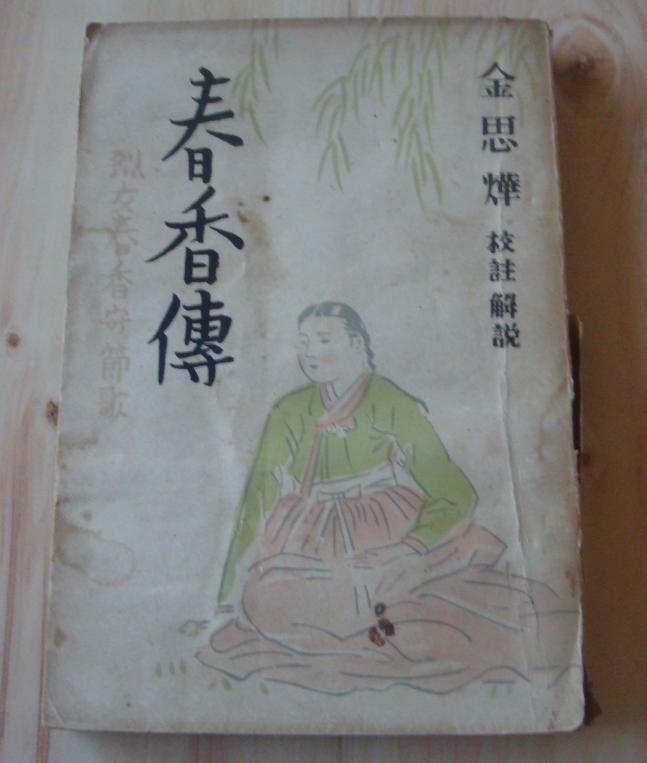 金思燁 校註 解説
春香傳
烈女春香守節歌